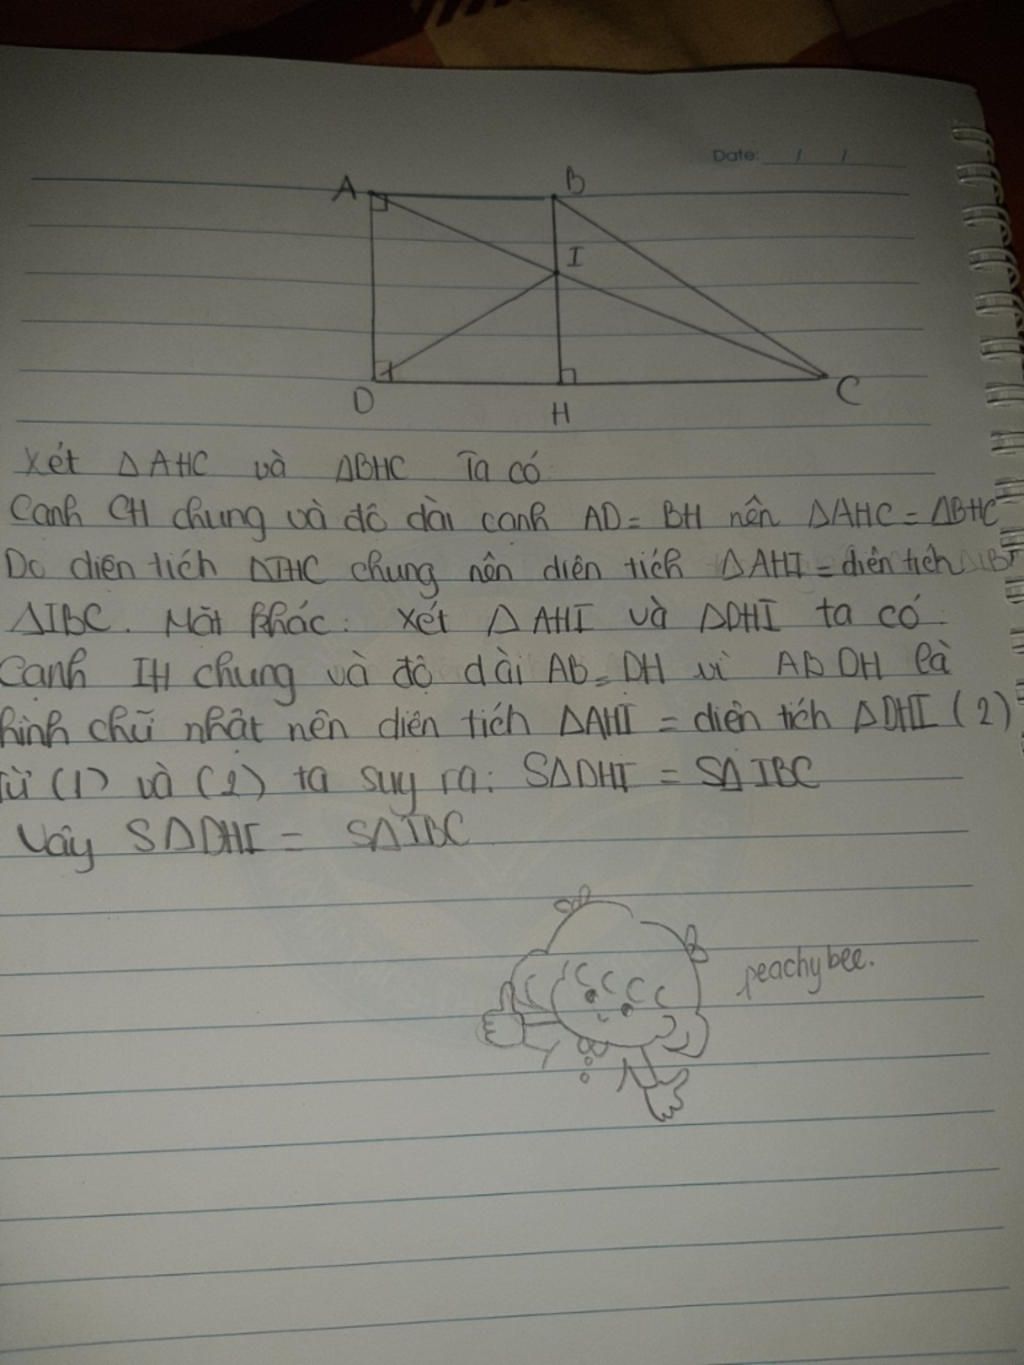 Date: / /
A B
I
D H C
Xét ΔAHC và ΔBHC Ta có
Canh CH chung và đô dài canh AD = BH nên ΔAHC = ΔBHC
Do diên tích ΔIHC chung nên diên tích ΔAHI = diên tích
ΔIBC. Măt khác: xét ΔAHI và ΔDHI ta có
Canh IH chung và độ dài AB = DH vì ABDH là
hình chữ nhât nên diên tích ΔAHI = diên tích ΔDHI (2)
Từ (1) và (2) ta suy ra: SΔDHI = SΔIBC
Vây SΔDHI = SΔIBC
peachybee.